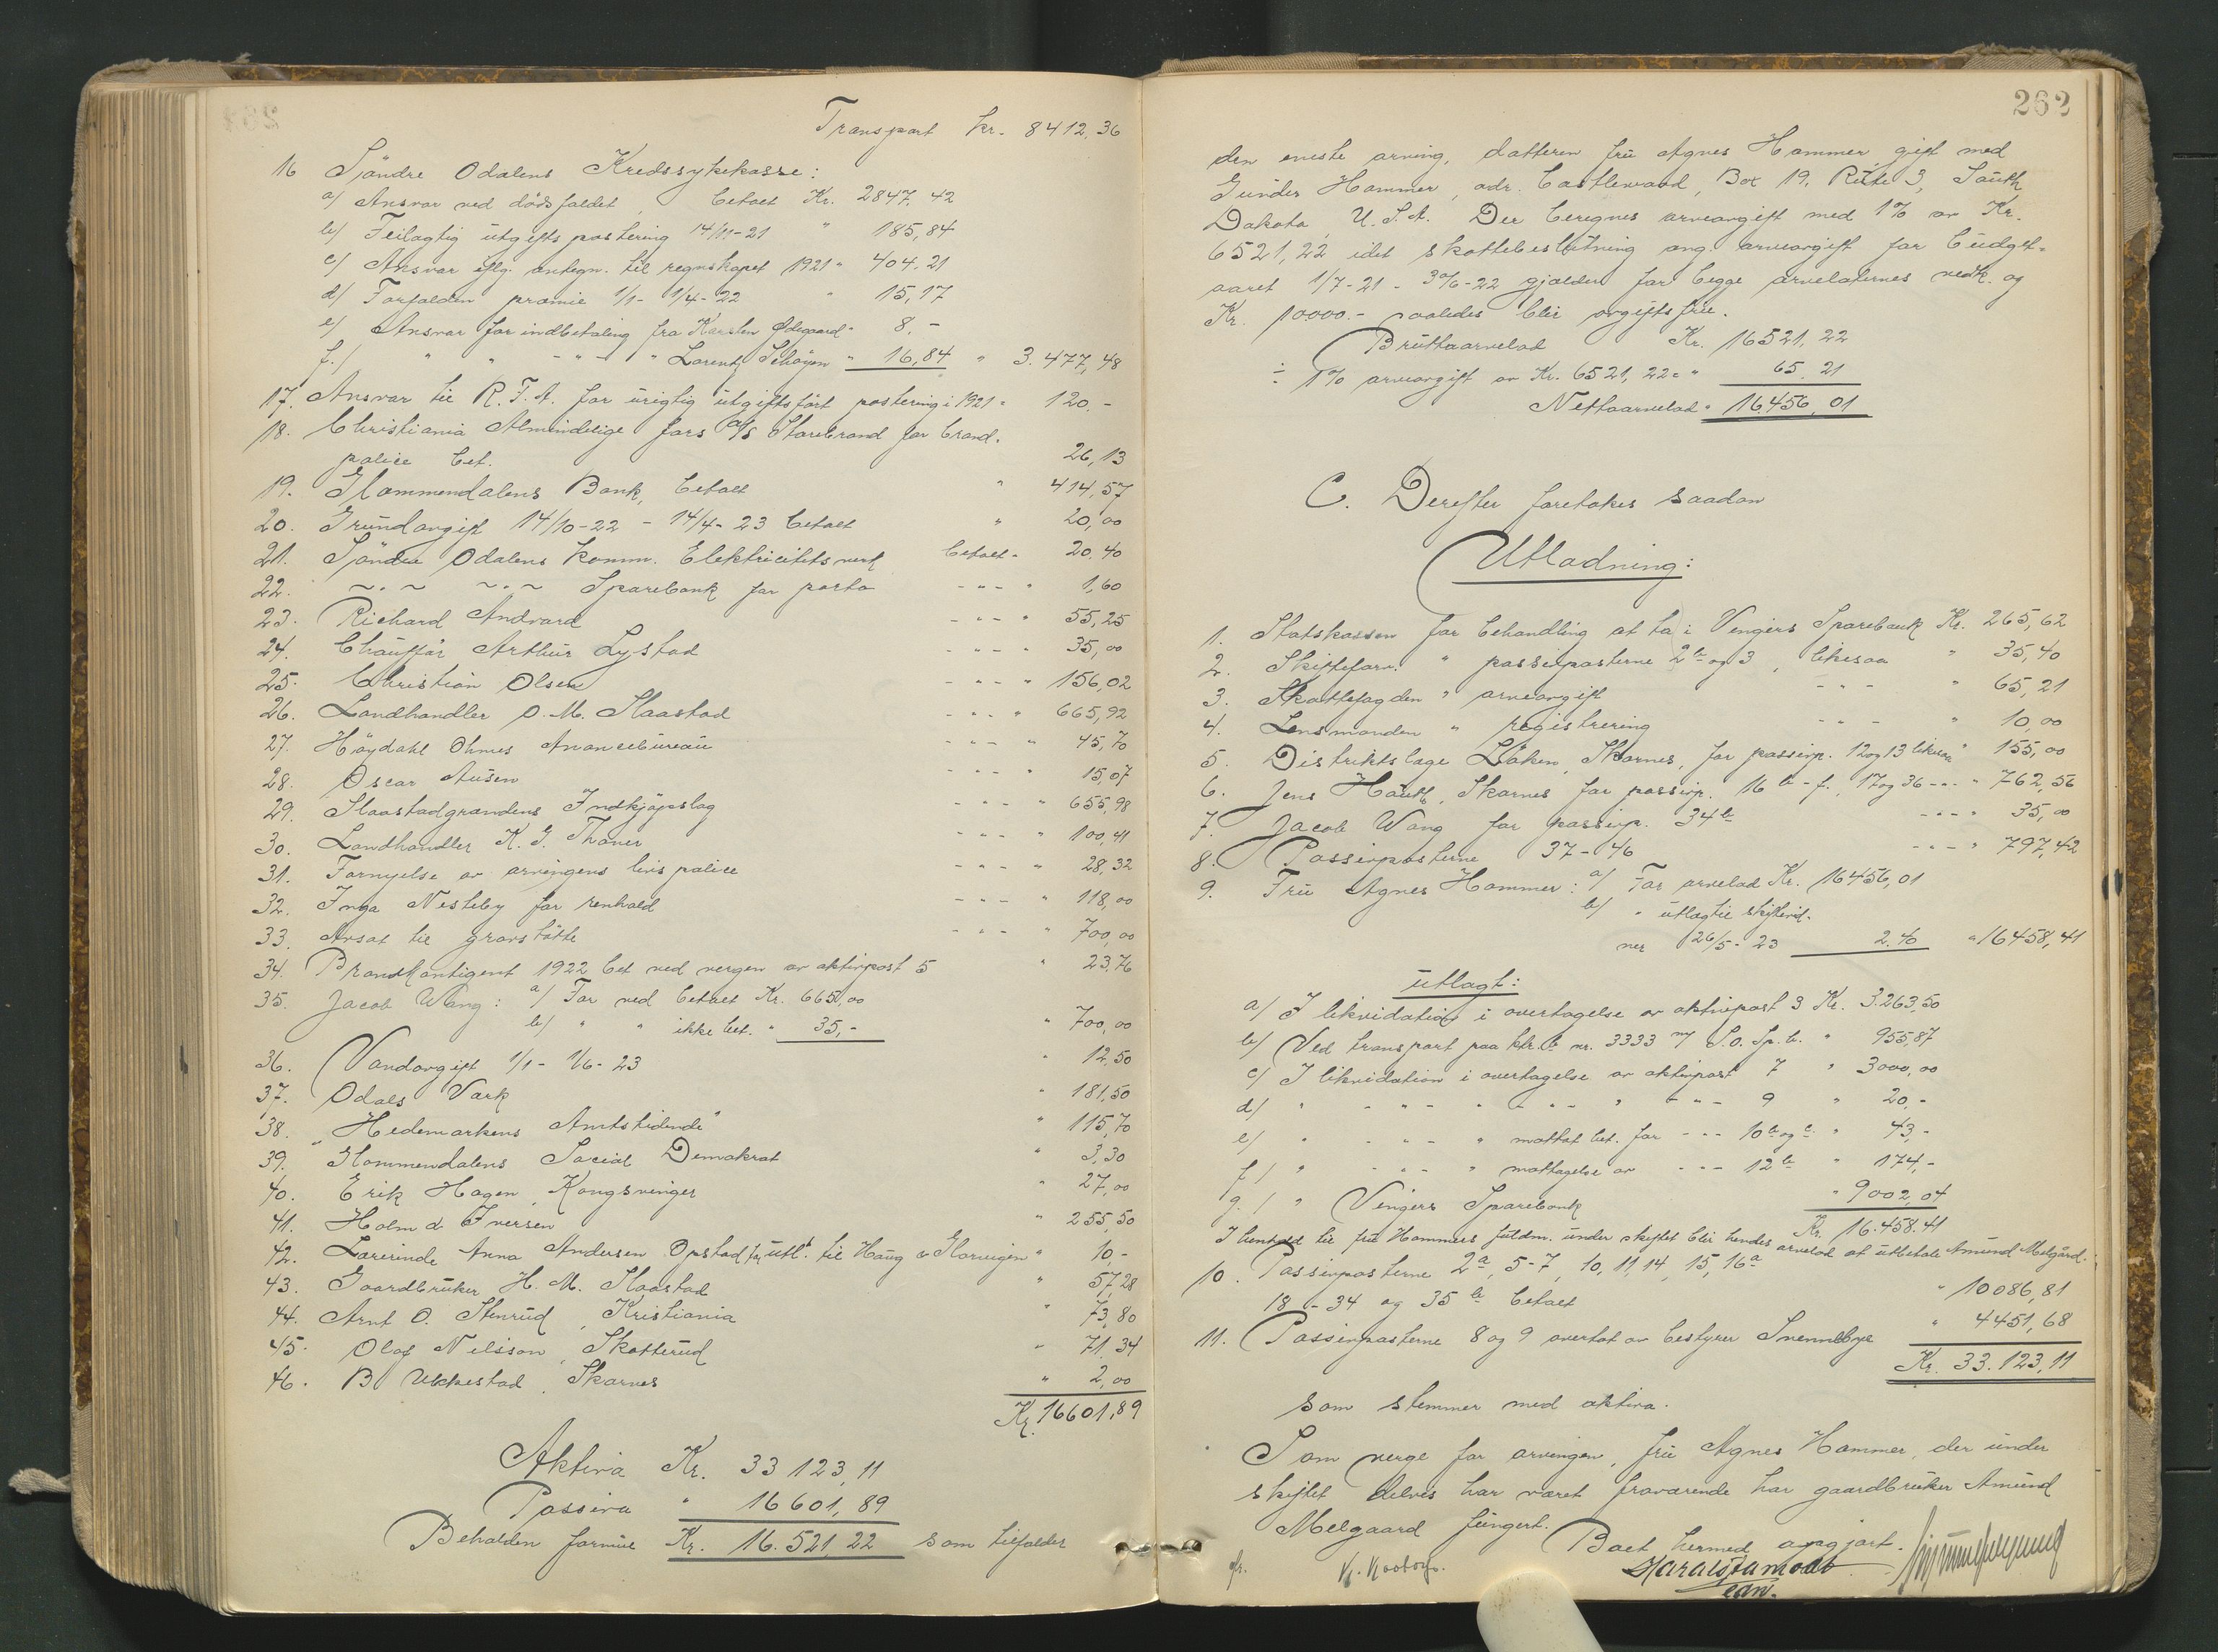 Transport kr. 8412,36
16 Søndre Odalens Kredssykekasse:
a/ Ansvar ved dødsfaldet, betalt Kr. 2847,42
b/ Feilagtig utgiftspostering 14/11-21 " 185,84
c/ Ansvar iflg. antegn. til regnskapet 1921 " 404.21
d/ Forfalden præmie 1/1 - 1/4-22 " 15,17
e/ Ansvar for indbetaling fra Karsten Ødegaard " 8.-
f./ " " - " - " Lorentz Schøyen " 16,84 " 3.477,48
17. Ansvar til R.T.A. for urigtig utgiftsført postering i 1921 " 120.-
18. Christiania Almindelige fors a/s Storebrand for brand-
police bet. 26,13
19. Glommendalens Bank, betalt " 414,57
20. Grundavgift 14/10-22 - 14/4-23 betalt " 20,00
21. Søndre Odalens komm. Elektricitetsverk betalt " 20.40
22. ~"~ ~"~ Sparebank for porto - " - " 1,60
23. Richard Andvard - " - " 55,25
24. Chauffør Arthur Lystad - " - " 35,00
25. Christian Olsen - " - " 156,02
26. Landhandler O. M. Slaastad - " - " 665,92
27. Høydahl Ohmes Anoncebureau - " - " 45,70
28. Oscar Ausen - " - " 15,07
29. Slaastadgrandens Indkjøpslag - " - " 655,98
30. Landhandler K. G. Thoner - " - " 100,41
31. Fornyelse av arvingens livspolice - " - " 28,32
32. Inga Nesteby for renhold - " - " 118,00
33. Avsat til gravstøtte - " - " 700,00
34. Brandkontigent 1922 bet ved vergen av aktivpost 5 " 23,76
35. Jacob Wang: a/ Før ved betalt Kr. 665,00
b/ " " ikke bet. " 35,- " 700,00
36. Vandavgift 1/1 - 1/6-23 " 12,50
37. Odals Værk " 181,50
38. "Hedemarkens Amtstidende" " 115,70
39. Glommendalens Social Demokrat " 3,30
40. Erik Hagen, Kongsvinger " 27,00
41. Holm & Iversen " 255,50
42. Lærerinde Anna Andersen Opstad for utl. til Haug & Glorvigen " 10,-
43. Gaardbruker H. M. Slaastad " 57,28
44. Arnt O. Stenrud, Kristiania " 73,80
45. Olaf Nilsson, Skotterud " 71,34
46. B. Ukkestad, Skarnes " 2,00
Kr. 16601,89
Aktiva Kr. 33 123,11
Passiva " 16601,89
Beholden formue Kr. 16.521,22 som tilfalder
262
den eneste arving, datteren fru Agnes Hammer gift med
Gunder Hammer, adr. Castlewood, Box 19, Rute 3, South
Dakota, U.S.A. Der beregnes arveavgift med 1% av Kr.
6521,22 idet skattebeslutning ang. arveavgift for budget-
aaret 1/7-21 - 30/6-22 gjælder for begge arvelaternes vedk. og
Kr. 10000.- saaledes blir avgiftsfrie.
Bruttoarvelod Kr. 16521,22
÷ 1% arveavgift av Kr. 6521,22 = " 65.21
Nettoarvelod " 16456,01
C. Derefter foretakes saadan
Utlodning:
1. Statskassen for behandling at ta i Vingers Sparebank Kr. 265,62
2. Skifteforv. " passivposterne 2b og 3, likesaa " 35,40
3. Skattefogden " arveavgift - " - " 65,21
4. Lensmanden " registrering - " - " 10,00
5. Distriktslæge Løken, Skarnes, for passivp. 12 og 13 likesaa " 155,00
6. Jens Hauth, Skarnes for passivp. 16 b-f, 17 og 36 - " - " 762,56
7. Jacob Wang for passivp. 34b - " - " 35,00
8. Passivposterne 37-46 - " - " 797,42
9. Fru Agnes Hammer: a/ For arvelod Kr. 16456,01
b/ " utlæg til skiftevid-
ner 26/5-23 2.40 " 16458,41
utlagt:
a/ I likvidation i overtagelse av aktivpost 3 Kr. 3.263,50
b/ Ved transport paa ktr.b. nr. 3333 m/ S.O. Sp.b. " 955,87
c/ I likvidation i overtagelse av aktivpost 7 " 3000,00
d/ " - " - " - " - " - " - 9 " 20,-
e/ " - " - " mottat bet. for - " - 10 b og c " 43,-
f/ " - " - " mottagelse av - " - 12b " 174,-
g./ " Vingers Sparebank " 9002,04
Kr. 16.458.41
I henhold til fru Hammers fuldm. under skiftet blir hendes arvelod at utbetale Amund Melgård.
10. Passivposterne 2a, 5-7, 10, 11, 14, 15, 16a
18 - 34 og 35 b betalt " 10086,81
11. Passivposterne 8 og 9 overtat av bestyrer Svennebye " 4451,68
Kr. 33.123,11
som stemmer med aktiva.
Som verge for arvingen, fru Agnes Hammer, der under
skiftet delvis har været fraværende har gaardbruker Amund
Melgaard fungert.
Boet hermed avgjort.